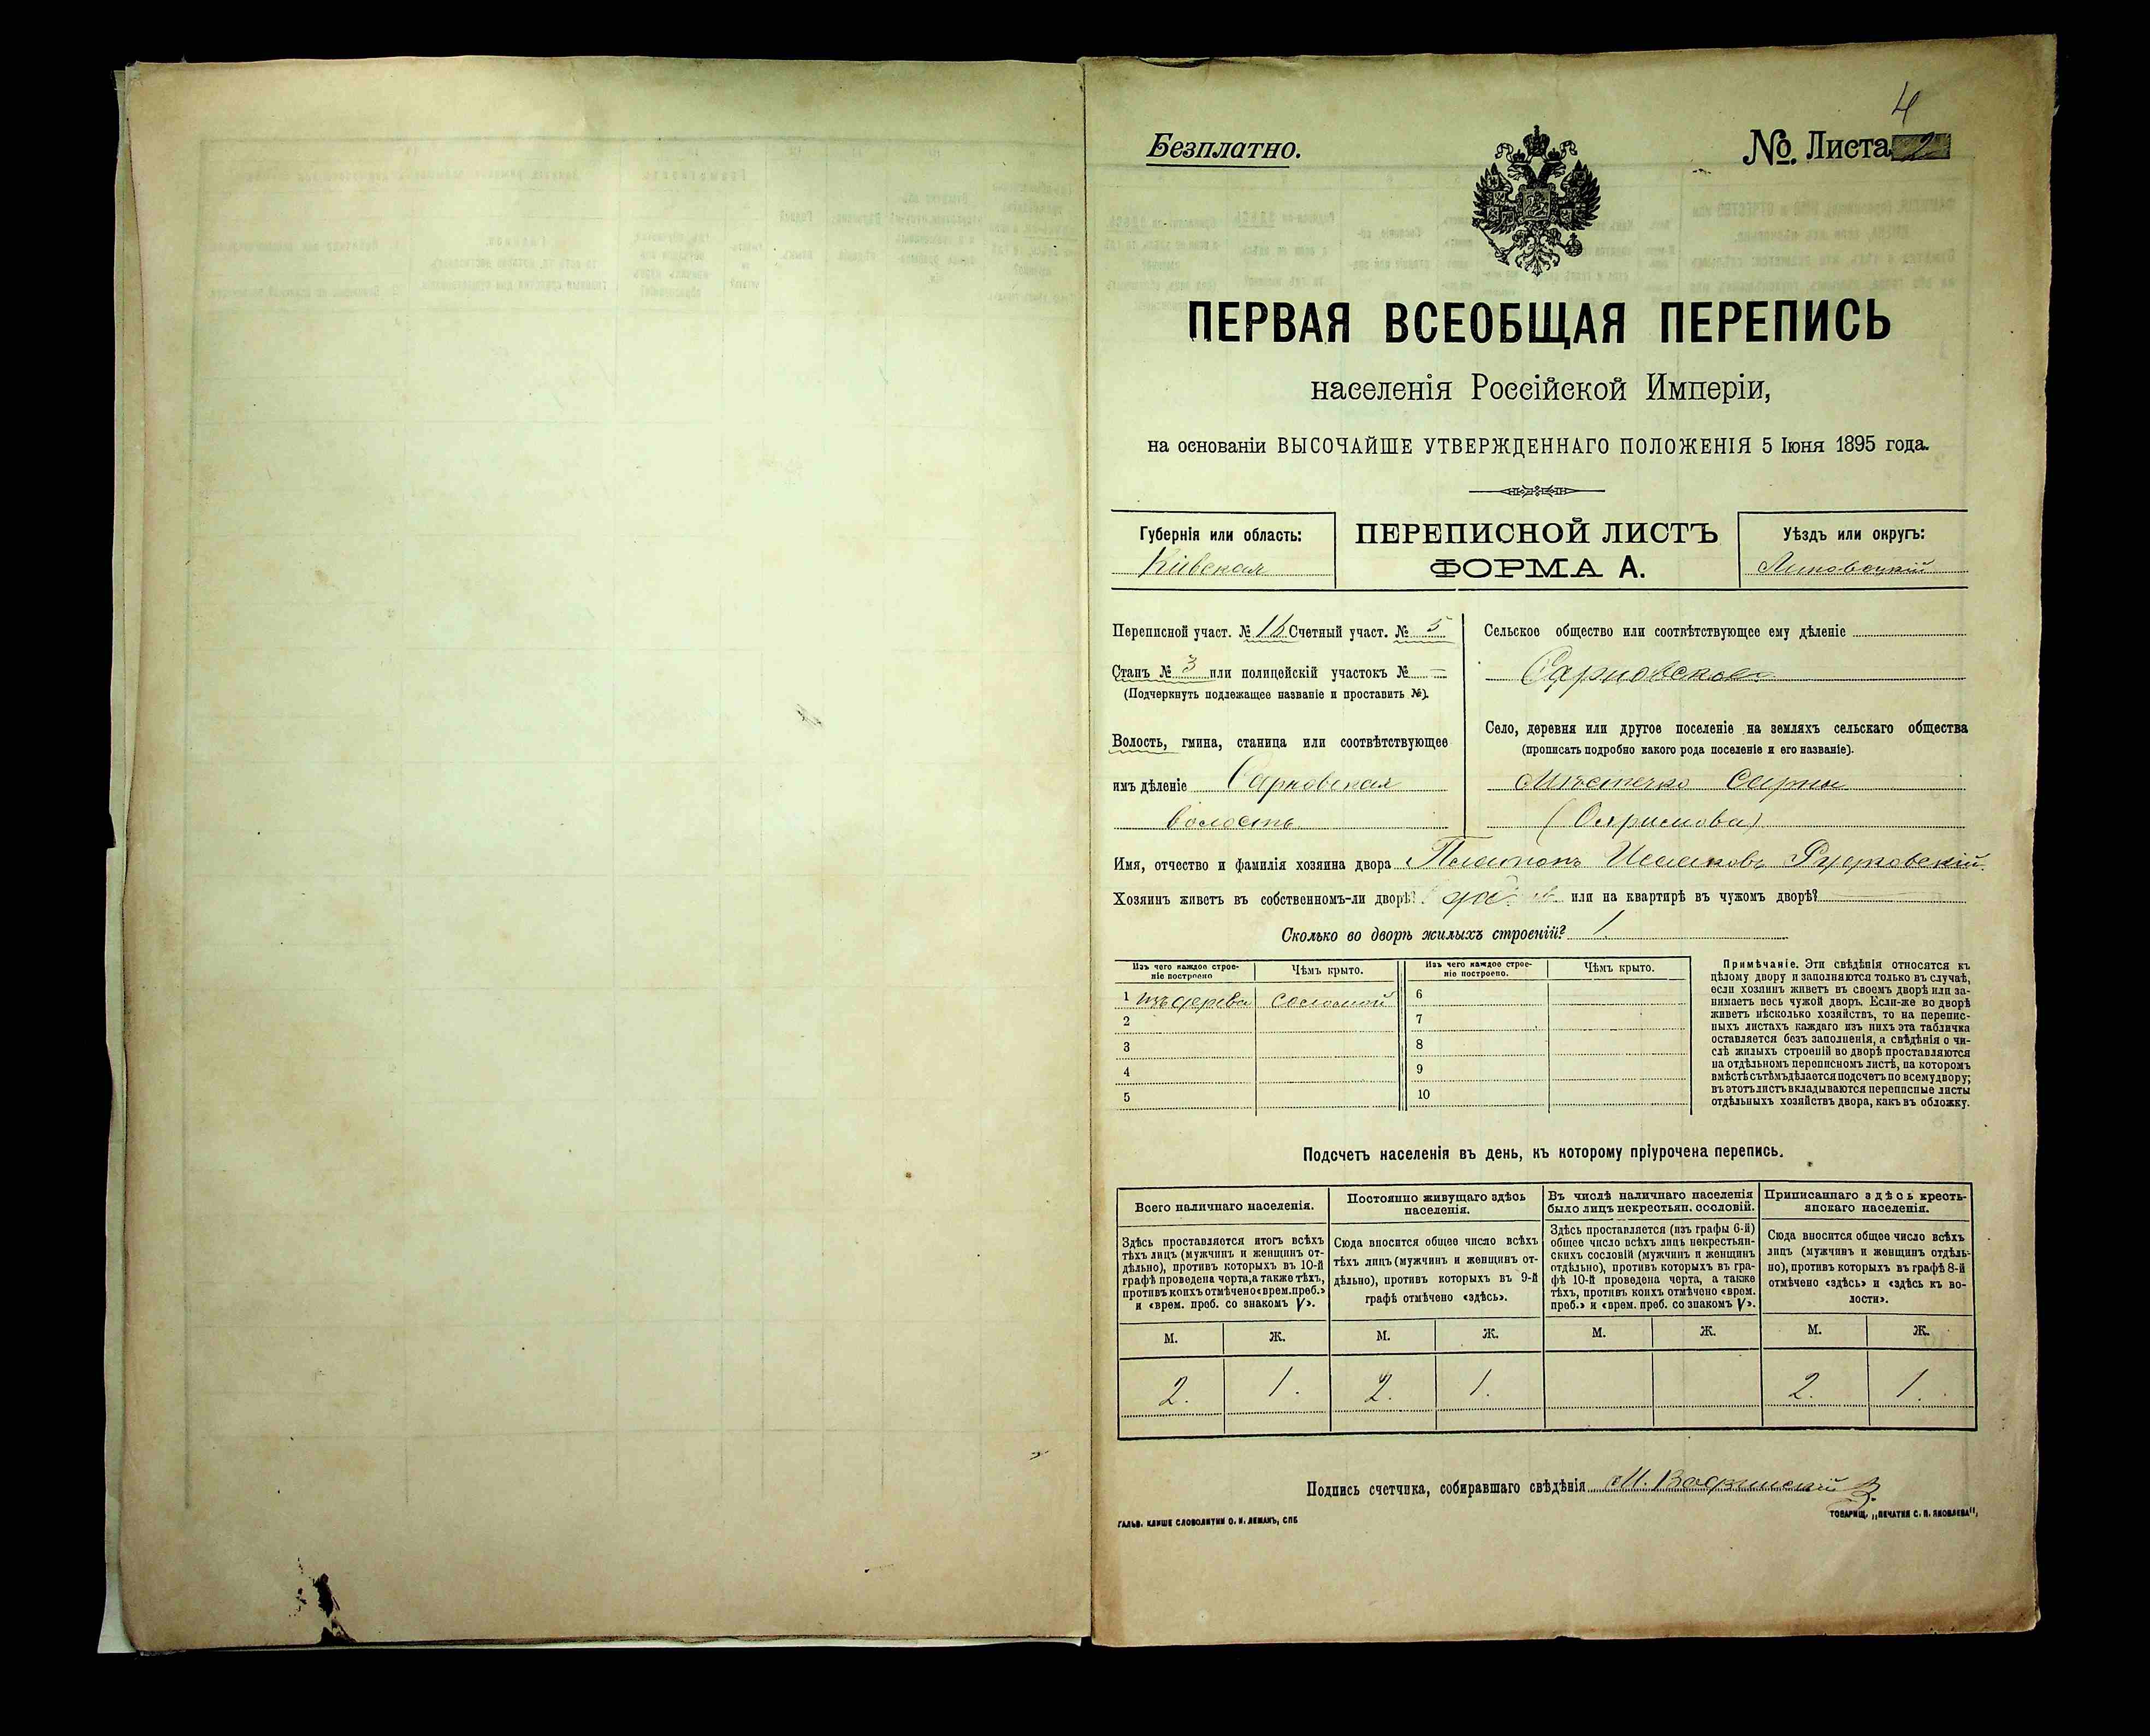 4
Безплатно.
№. Листа 2
ПЕРВАЯ ВСЕОБЩАЯ ПЕРЕПИСЬ
населенія Россійской Имперіи,
на основаніи ВЫСОЧАЙШЕ УТВЕРЖДЕННАГО ПОЛОЖЕНІЯ 5 Іюня 1895 года.
Губернія или область:
Кіевская
ПЕРЕПИСНОЙ ЛИСТЪ
ФОРМА А.
Уѣздъ или округъ:
Липовецкій
Переписной участ. № 16 Счетный участ. № 5
Станъ № 3 или полицейскій участокъ № —
(Подчеркнуть подлежащее названіе и проставить №).
Волость, гмина, станица или соотвѣтствующее
имъ дѣленіе Сарновская
волость
Сельское общество или соотвѣтствующее ему дѣленіе
Сарновское
Село, деревня или другое поселеніе на земляхъ сельскаго общества
(прописать подробно какого рода поселеніе и его названіе).
Мѣстечко Сарны
Имя, отчество и фамилія хозяина двора Платонъ Исааковъ Рудковскій
Хозяинъ живетъ въ собственномъ-ли дворѣ? да или на квартирѣ въ чужомъ дворѣ? —
Сколько во дворѣ жилыхъ строеній? 1.
Изъ чего каждое строе-
ніе построено
Чѣмъ крыто.
Изъ чего каждое строе-
ніе построено.
Чѣмъ крыто.
1 изъ дерева соломой
2
3
4
5
6
7
8
9
10
Примѣчаніе. Эти свѣдѣнія относятся къ
цѣлому двору и заполняются только въ случаѣ,
если хозяинъ живетъ въ своемъ дворѣ или за-
нимаетъ весь чужой дворъ. Если-же во дворѣ
живетъ нѣсколько хозяйствъ, то на перепис-
ныхъ листахъ каждаго изъ нихъ эта табличка
оставляется безъ заполненія, а свѣдѣнія о чи-
слѣ жилыхъ строеній во дворѣ проставляются
на отдѣльномъ переписномъ листѣ, на которомъ
вмѣстѣ съ тѣмъ дѣлается подсчетъ по всему двору;
въ этотъ листъ вкладываются переписные листы
отдѣльныхъ хозяйствъ двора, какъ въ обложку.
Подсчетъ населенія въ день, къ которому пріурочена перепись.
Всего наличнаго населенія.
Здѣсь проставляется итогъ всѣхъ
тѣхъ лицъ (мужчинъ и женщинъ от-
дѣльно), противъ которыхъ въ 10-й
графѣ проведена черта, а также тѣхъ,
противъ коихъ отмѣчено «врем. преб.»
и «врем. преб. со знакомъ V».
Постоянно живущаго здѣсь
населенія.
Сюда вносится общее число всѣхъ
тѣхъ лицъ (мужчинъ и женщинъ от-
дѣльно), противъ которыхъ въ 9-й
графѣ отмѣчено «здѣсь».
Въ числѣ наличнаго населенія
было лицъ некрестьян. сословій.
Здѣсь проставляется (изъ графы 6-й)
общее число всѣхъ лицъ некрестьян-
скихъ сословій (мужчинъ и женщинъ
отдѣльно), противъ которыхъ въ гра-
фѣ 10-й проведена черта, а также
тѣхъ, противъ коихъ отмѣчено «врем.
преб.» и «врем. преб. со знакомъ V».
Приписаннаго здѣсь кресть-
янскаго населенія.
Сюда вносится общее число всѣхъ
лицъ (мужчинъ и женщинъ отдѣль-
но), противъ которыхъ въ графѣ 8-й
отмѣчено «здѣсь» и «здѣсь къ во-
лости».
М. Ж. М. Ж. М. Ж. М. Ж.
2. 1. 2. 1. 2. 1.
Подпись счетчика, собиравшаго свѣдѣнія
ГАЛЬВ. КЛИШЕ СЛОВОЛИТНИ О. И. ЛЕМАНЪ, СПБ
ТОВАРИЩ. „ПЕЧАТНЯ С. П. ЯКОВЛЕВА",